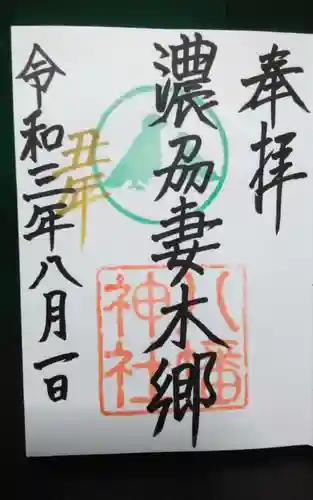 奉拝
濃刕妻木郷
八幡神社
丑年
令和三年八月一日